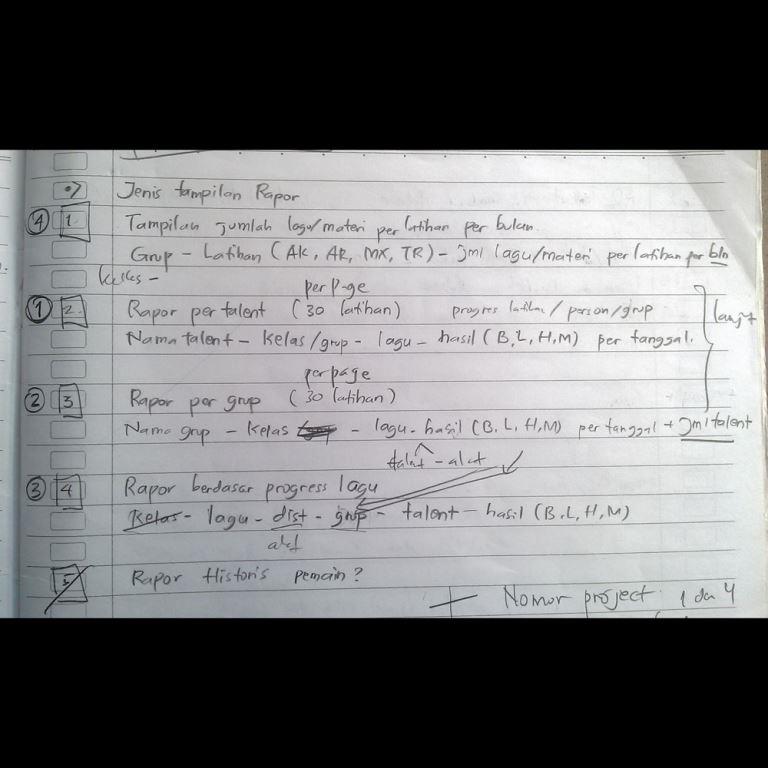 •) Jenis tampilan Rapor
4 1. Tampilan jumlah lagu/materi per latihan per bulan.
Grup - Latihan (AK, AR, MX, TR) - jml lagu/materi per latihan per bln
kelas -
per page
1 2. Rapor per talent (30 latihan) progres latihan / person/grup
Nama talent - kelas/grup - lagu - hasil (B, L, H, M) per tanggal.
lanjt
per page
2 3 Rapor per grup (30 latihan)
Nama grup - kelas - lagu - hasil (B, L, H, M) per tanggal + Jml talent
talent - alat
3 4 Rapor berdasar progress lagu
Kelas - lagu - dist - grup - talent - hasil (B, L, H, M)
alat
5 Rapor Historis pemain?
Nomor project 1 da 4